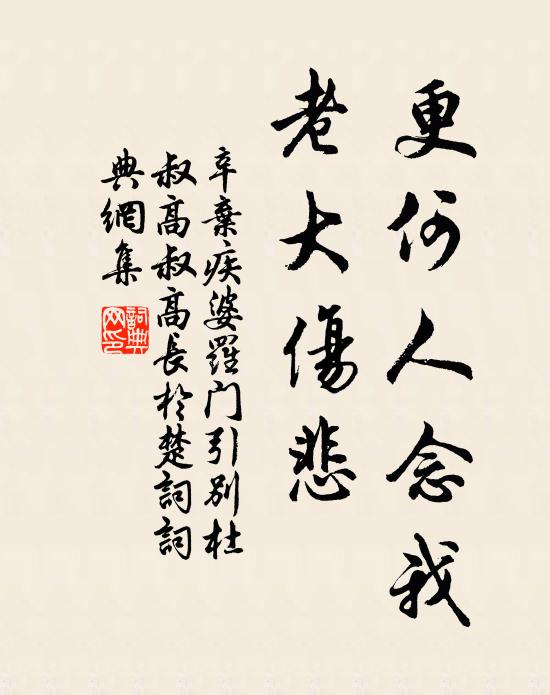 更何人念我
老大傷悲
辛棄疾婆羅门引別杜
叔高叔高長於楚詞詞
典網集
詞典
网印